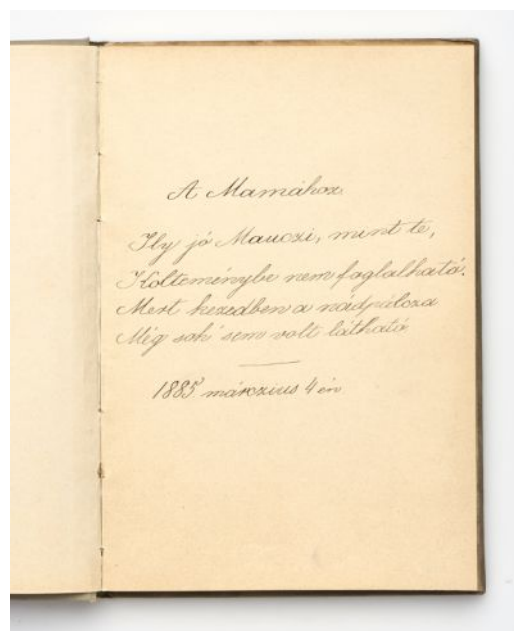 A Mamához.
Ily jó Mauczi, mint te,
Költeménybe nem faglalható.
Mert kezedben a nádpálcza
Még soh' sem volt látható
1885 márczius 4 én